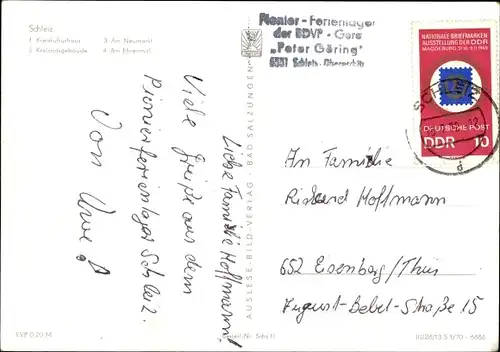 Schleiz
1 Kreiskulturhaus 3 Am Neumarkt
2 Kreisratsgebäude 4 Am Ehrenmal
Liebe Familie Hoffmann!
Viele Grüße aus dem
Pionierferienlager Schleiz.
Von Uwe B.
EVP 0,20 M
AUSLESE-BILD-VERLAG · BAD SALZUNGEN
Pionier - Ferienlager
der BDVP - Gera
„Peter Göring"
6551 Schleiz, Oberoschitz
NATIONALE BRIEFMARKEN
AUSSTELLUNG DER DDR
MAGDEBURG 31.10.-9.11.1969
DEUTSCHE POST
DDR 10
SCHLEIZ
d
An Familie
Richard Hoffmann
652 Eisenberg/Thür
August-Bebel-Straße 15
III/26/13 S 1/70 - 6686